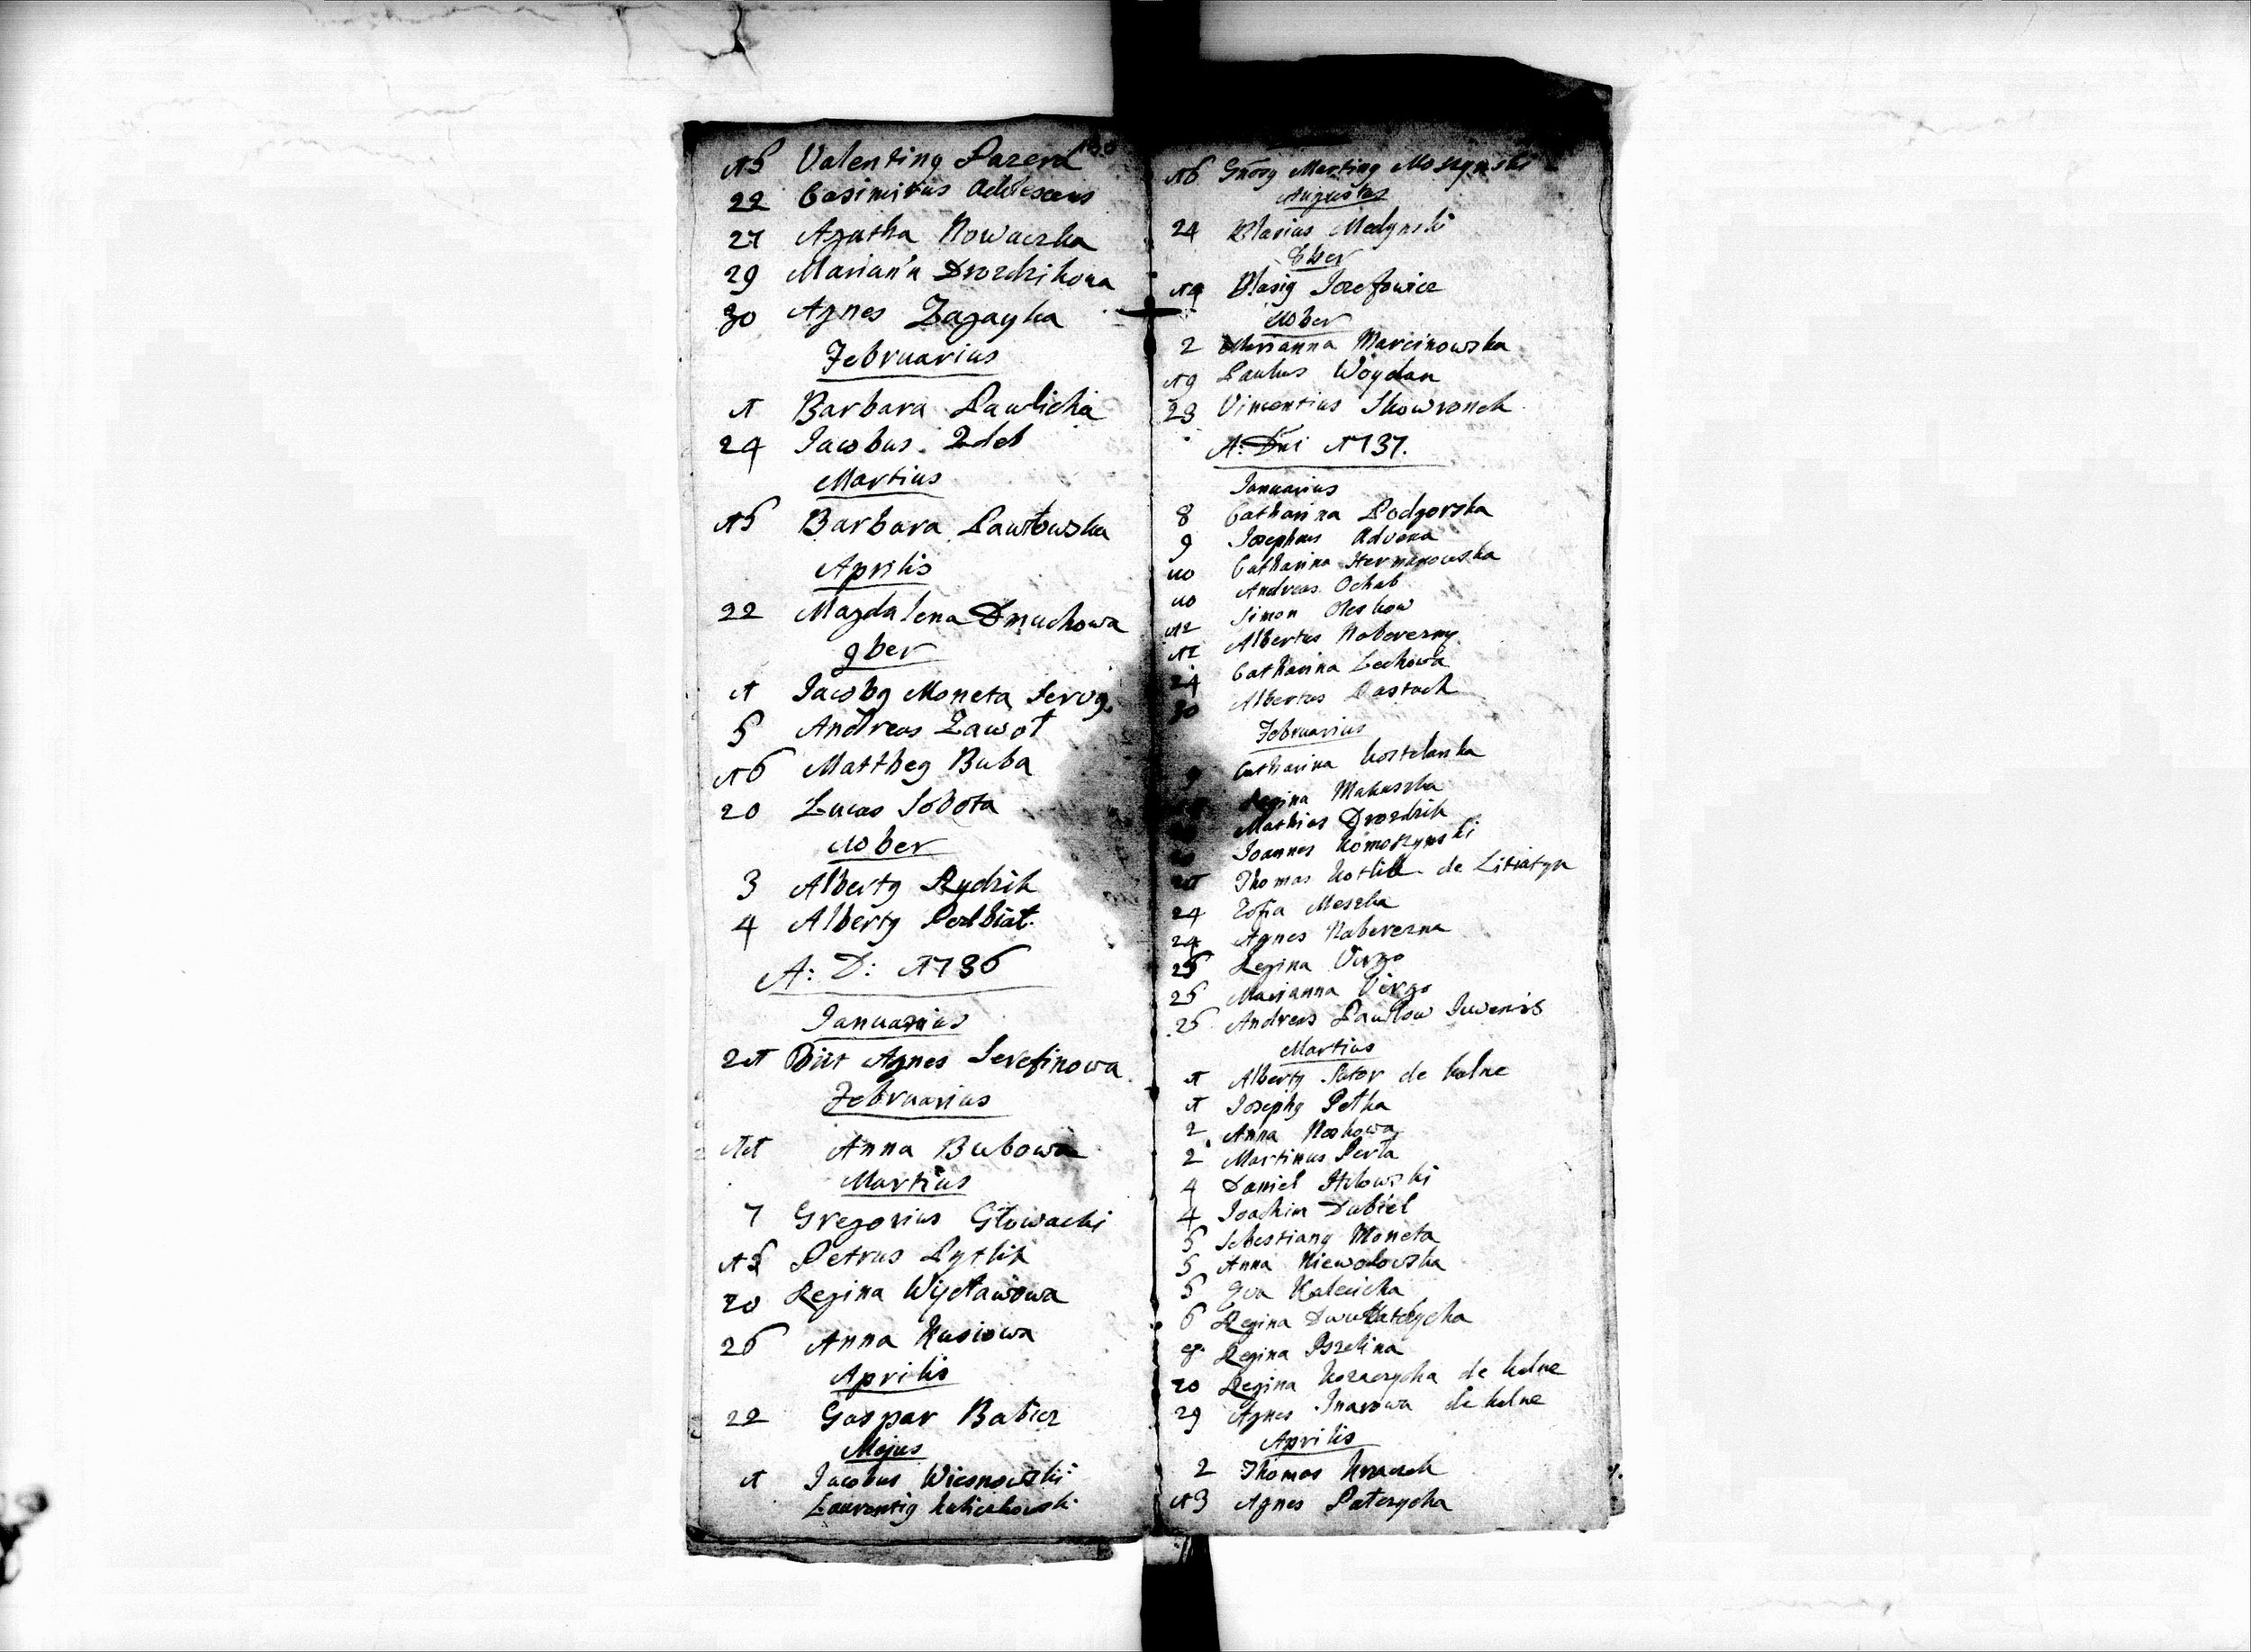 15 Valenting Pazera
22 Casimirus Adolescens
27 Agatha Nowaczka
29 Marian̄a Drozdzikowa
30 Agnes Zagayka
Februarius
1 Barbara Pawlicka
24 Jacobus Zdeb
Martius
15 Barbara Pawłowska
Aprilis
22 Magdalena Dmuchowa
9ber
1 Jacobg Moneta Servg
5 Andreas Zawoł
16 Mattheg Buba
20 Lucas Sobota
10ber
3 Albertg Rydzik
4 Albertg
A: D: 1736
Januarius
21 Agnes Serefinowa
Februarius
11 Anna Bubowa
Martius
7 Gregorius Głowacki
Petrus Pytlik
20 Regina
26 Anna Kusiowa
Aprilis
22 Gaspar Babicz
Majus
1 Jacobus Wiesnowski
Laurentig
16 Marting Moszynski
Augustus
24 Blasius Medynski
19 Blasig Jozefowicz
10ber
2 Marianna Marcinowska
19 Paulus Woydan
23 Vincentius Skowronek
A: Dni 1737.
Januarius
8 Catharina Podgorska
9 Josephus Advena
10 Catharina Hermanowska
10 Andreas Ochab
12 Simon Oleskow
Albertus Naberezny
24 Catharina Lechowa
30 Albertus Pastuch
Februarius
9 Catharina Kostelanka
Regina Makuszka
Mathias Drozdzik
Joannes Komoszynski
Thomas Kotlik de Litiatyn
24 Zofia Meszka
24 Agnes Naberezna
25 Regina Virgo
25 Marianna Virgo
26 Andreas Pawłow Juvenis
Martius
1 Albertg Sutor de Kalne
1 Josephg Petka
2 Anna Noskowa
2 Martinus Perła
4 Daniel
4 Joachim Dubiel
5 Sebestiang Moneta
5 Anna Niewodowska
5 Eva Kalecicka
6 Regina
Regina Pszelina
20 Regina Kozaczycha de Kalne
29 Agnes de Kalne
Aprilis
2 Thomas
13 Agnes Paterycha